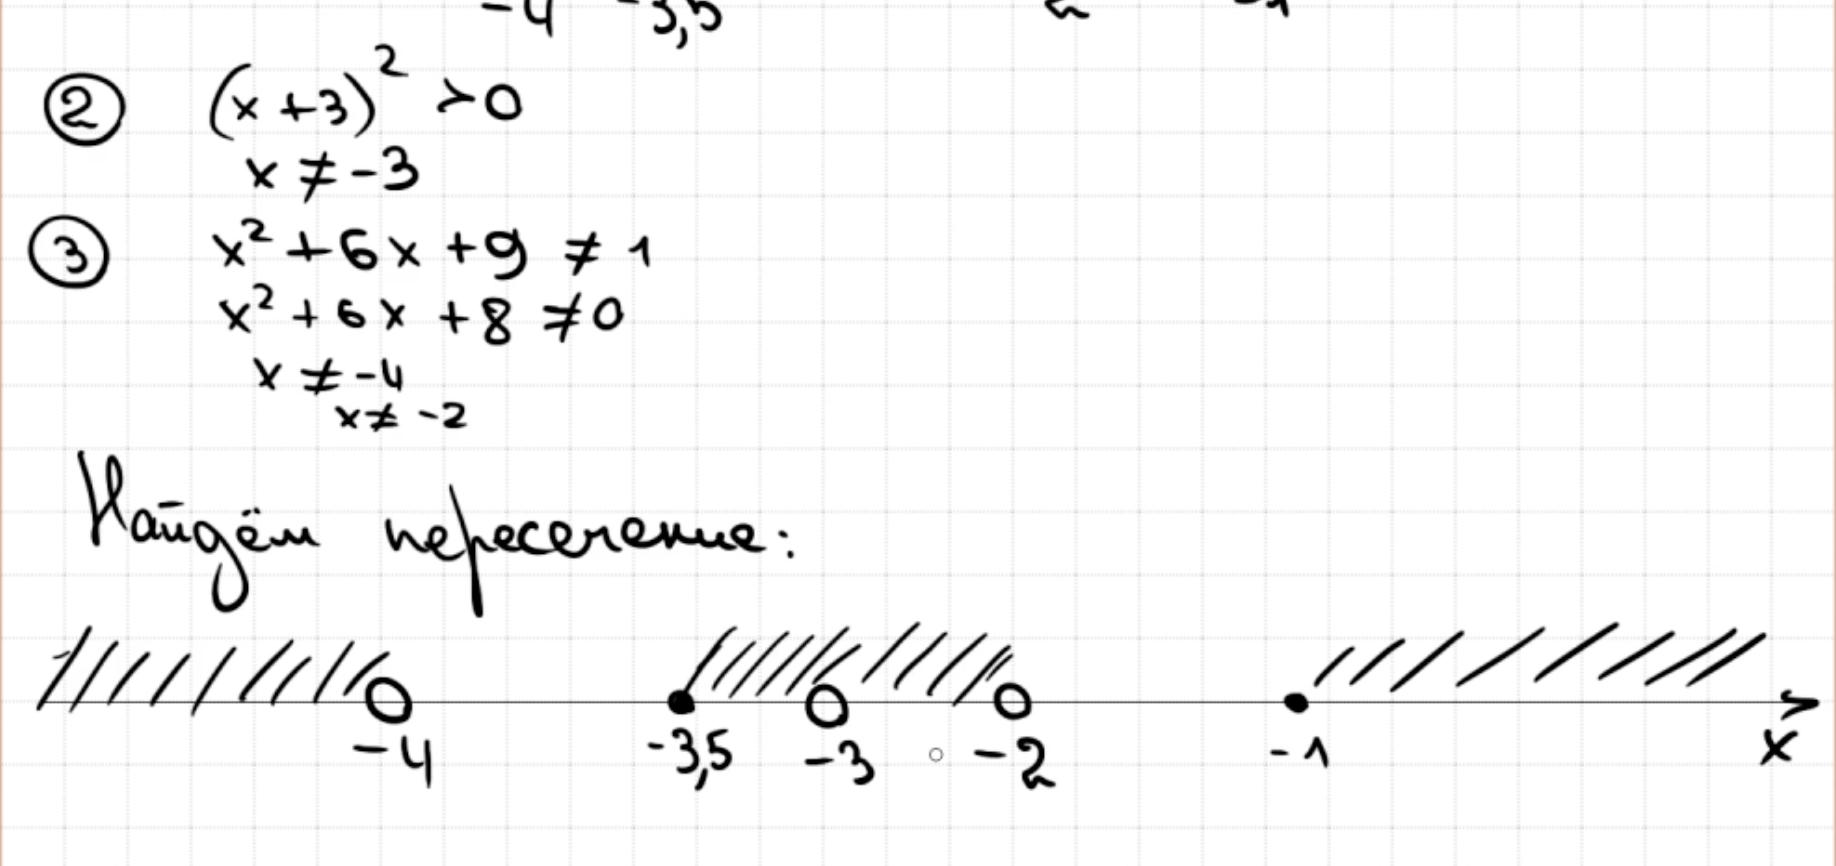 -4 -3,5 2 -1
② (x+3)² >0
x ≠ -3
③ x² +6x +9 ≠ 1
x² +6x +8 ≠0
x ≠ -4
x≠ -2
Найдём пересечение:
-4 -3,5 -3 -2 -1 x